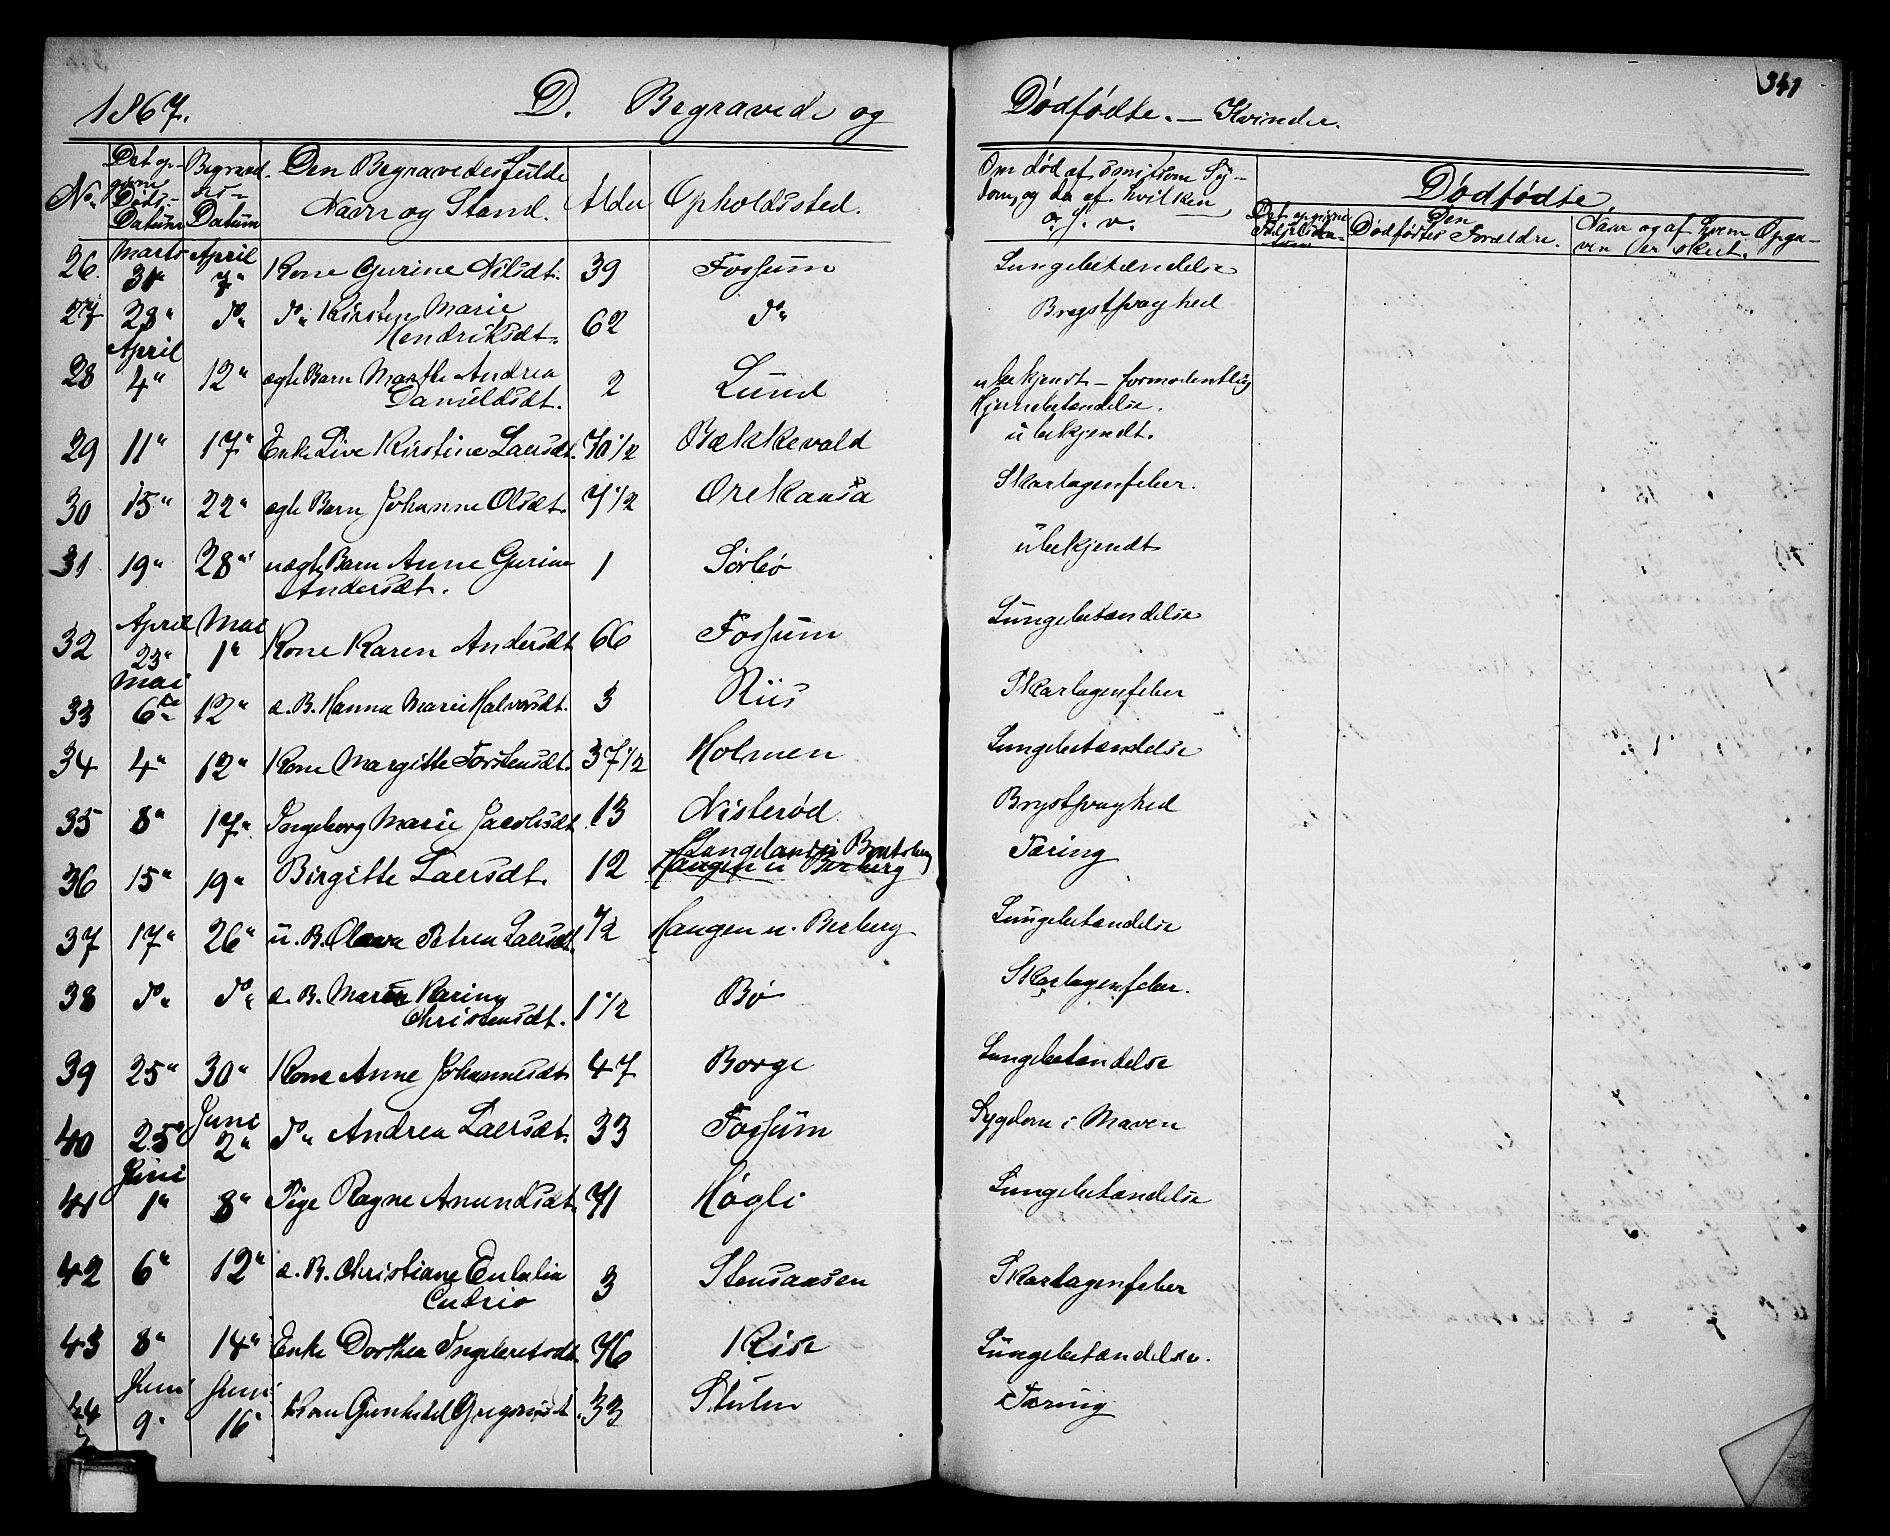 341
1867. D. Begravede og Dødfødte. — Kvinder.
No. Det opgivne Døds-Datum Begravelses-Datum Den Begravedes fulde Navn og Stand. Alder Opholdssted. Om død af smitsom Sygdom, og da af hvilken o. s. v. Dødfødte.
Den Dødfødtes Forældre. Naar og af hvem Opgaven er skeet.
26. Marts 31" April 7" Kone Gurine Nilsdt. 39 Fossum Lungebetændelse
27 28" do" do" Kirsten Marie 62 do" Brystsvaghed
Hendriksdt.
28 April 4" 12" ægte Barn Marthe Andrea 2 Lund ubekjendt – formodentlig
Danieldsdt. Hjernebetændelse.
29 11" 17" Enke Live Kirstine Laersdt. 70 1/2 Bækkevald ubekjendt.
30 15" 22" ægte Barn Johanne Olsdt. 7 1/2 Ørekaasa Skarlagenfeber.
31 19" 28" uægte Barn Anne Gurine 1 Sørbø ubekjendt
Andersdt.
32 April 23" Mai 1" Kone Karen Andersdt 66 Fossum Lungebetændelse
33 Mai 6te" 12" æ. B. Hanna Marie Halvorsdt. 3 Riis Skarlagenfeber
34 4" 12" Kone Margitte Torstensdt. 37 1/2 Holmen Lungebetændelse
35 8" 17" Ingeborg Marie Jacobsdt. 13 Nisterød Brystsvaghed
36 15" 19" Birgitte Laersdt. 12 Haugen u Berberg Tæring
37 17" 26" u. B. Olava Petrea Laersdt. 1/2 Haugen u. Berberg Lungebetændelse
38 do" do" æ. B. Maren Karine 1 1/2 Bø Skarlagenfeber.
Christensdt.
39 25" 30" Kone Anne Johannesdt. 47 Borge Lungebetændelse
40 25" Juni 2" do" Andrea Laersdt. 33 Fossum Sygdom i Maven
41 Juni 1" 8" Pige Ragne Amundsdt. 71 Høgli Lungebetændelse
42 6" 12" æ. B. Christiane Eulalia 3 Stensaasen Skarlagenfeber
Cudrio
43 8" 14" Enke Dorthea Ingebretsdt. 76 Rise Lungebetændelse.
44 Juni 9" Juni 16" Kone Gunhild Gregersdt. 33 Stulen Tæring